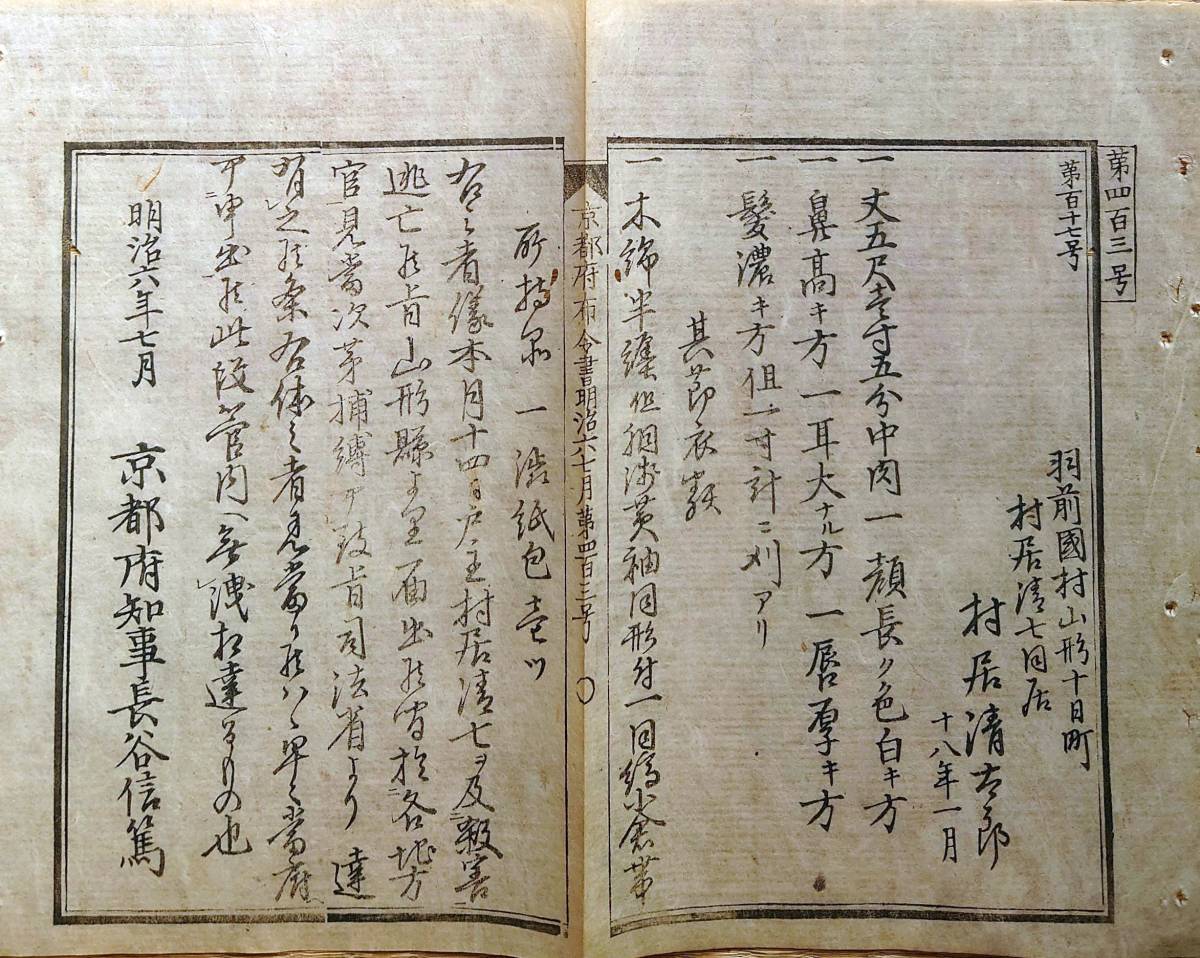 第四百三号
第百十七号
羽前國村山形十日町
村居清七同居
村居清太郎
十八年一月
一 丈五尺壱寸五分中肉一 顔長ク色白キ方
一 鼻高キ方 一 耳大ナル方 一 唇厚キ方
一 髪濃キ方但一寸計ニ刈アリ
其節衣類
一 木綿半纏但胴浅黄袖同形付一 同縞小倉帯
京都府布令書明治六七月第四百三号
所持品 一 渋紙包壱ツ
右之者儀本月十四日戸主村居清七ヲ及殺害
逃亡候旨山形縣より届出候間於各地方
官見當次第捕縛可致旨司法省より 達
有之候条右体之者見當り候ハヽ早々當府
可申出候此段管内へ無洩相達るもの也
明治六年七月 京都府知事長谷信篤